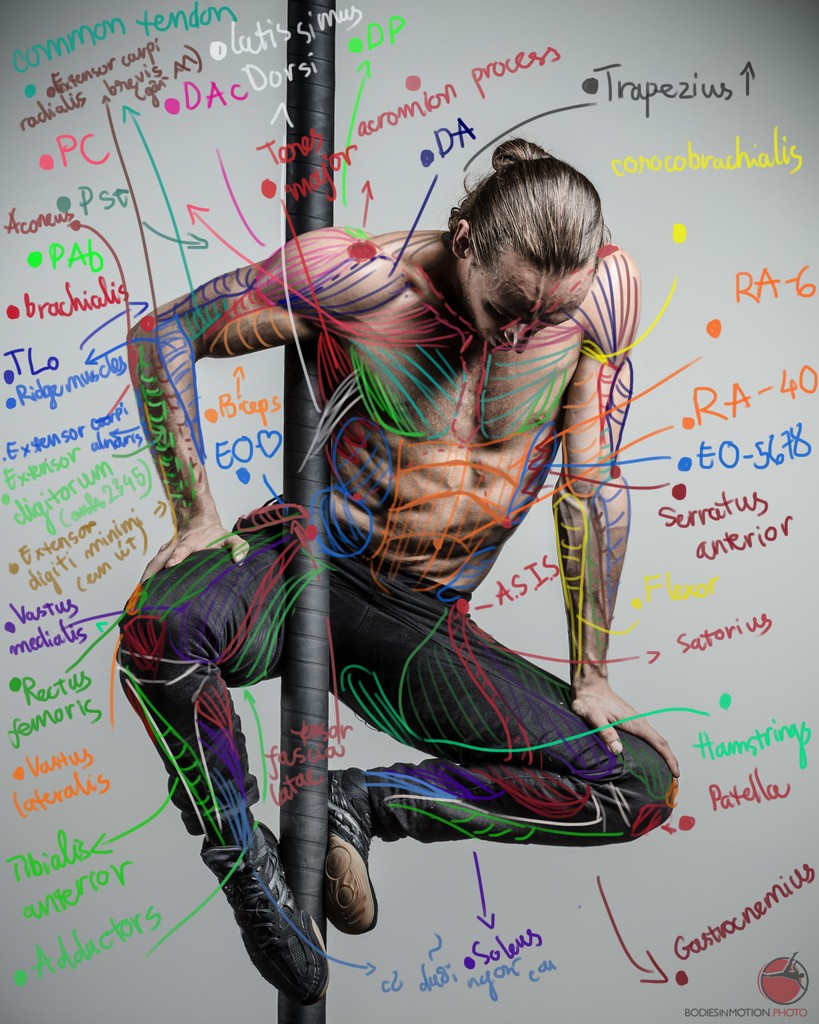 common tendon
Extensor carpi
radialis brevis
latissimus
Dorsi
DP
DAc
acromion process
Trapezius↑
PC
Teres
major
DA
corocobrachialis
Pst
Aconeus
PAb
brachialis
RA-6
TLo
Ridge muscles
Biceps
RA-40
Extensor carpi
ulnaris
EO♡
EO-5678
Extensor
digitorum
(anh 2345)
Serratus
anterior
Extensor
digiti minimi
(em út)
A.S.I.S
Flexor
Vastus
medialis
Satorius
Rectus
femoris
tensor
fascia
latae
Hamstrings
Vastus
lateralis
Patella
Tibialis
anterior
Adductors
Soleus
Gastrocnemius
BODIESINMOTION.PHOTO